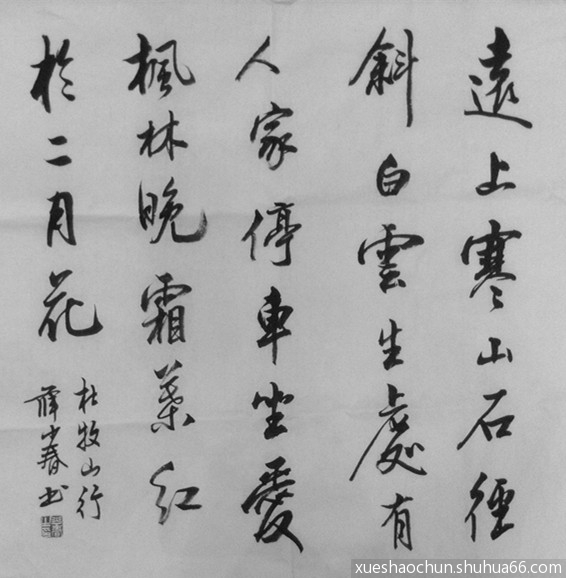 遠上寒山石徑
斜白雲生處有
人家停車坐愛
楓林晚霜葉紅
於二月花
杜牧山行
薛少春书
xueshaochun.shuhua66.com